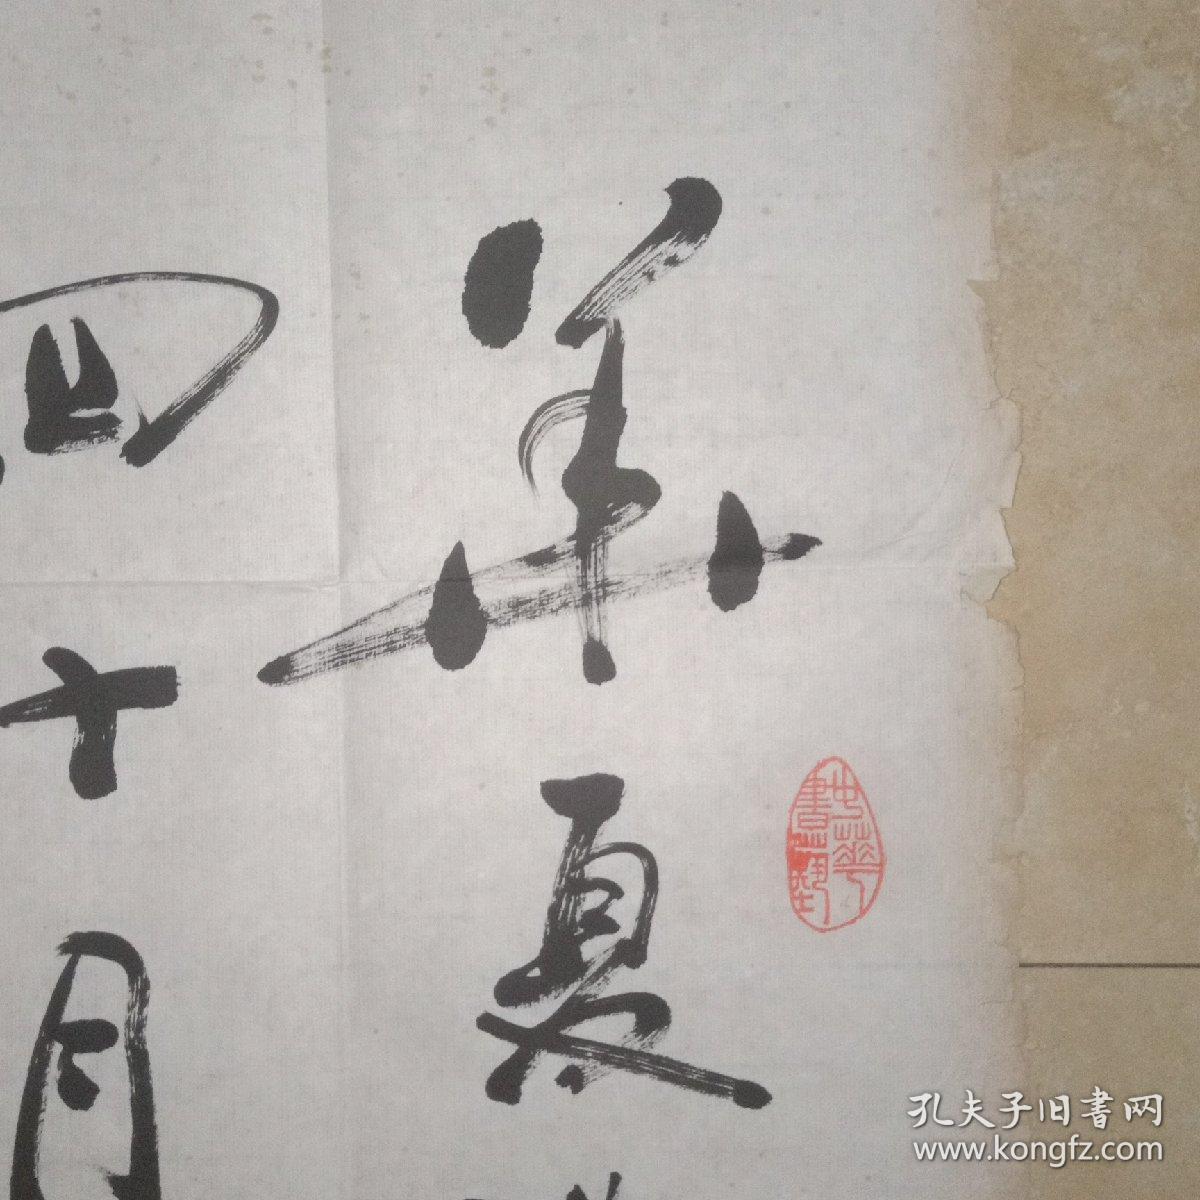 華夏
四十月
世華書藝
孔夫子旧書网
www.kongfz.com